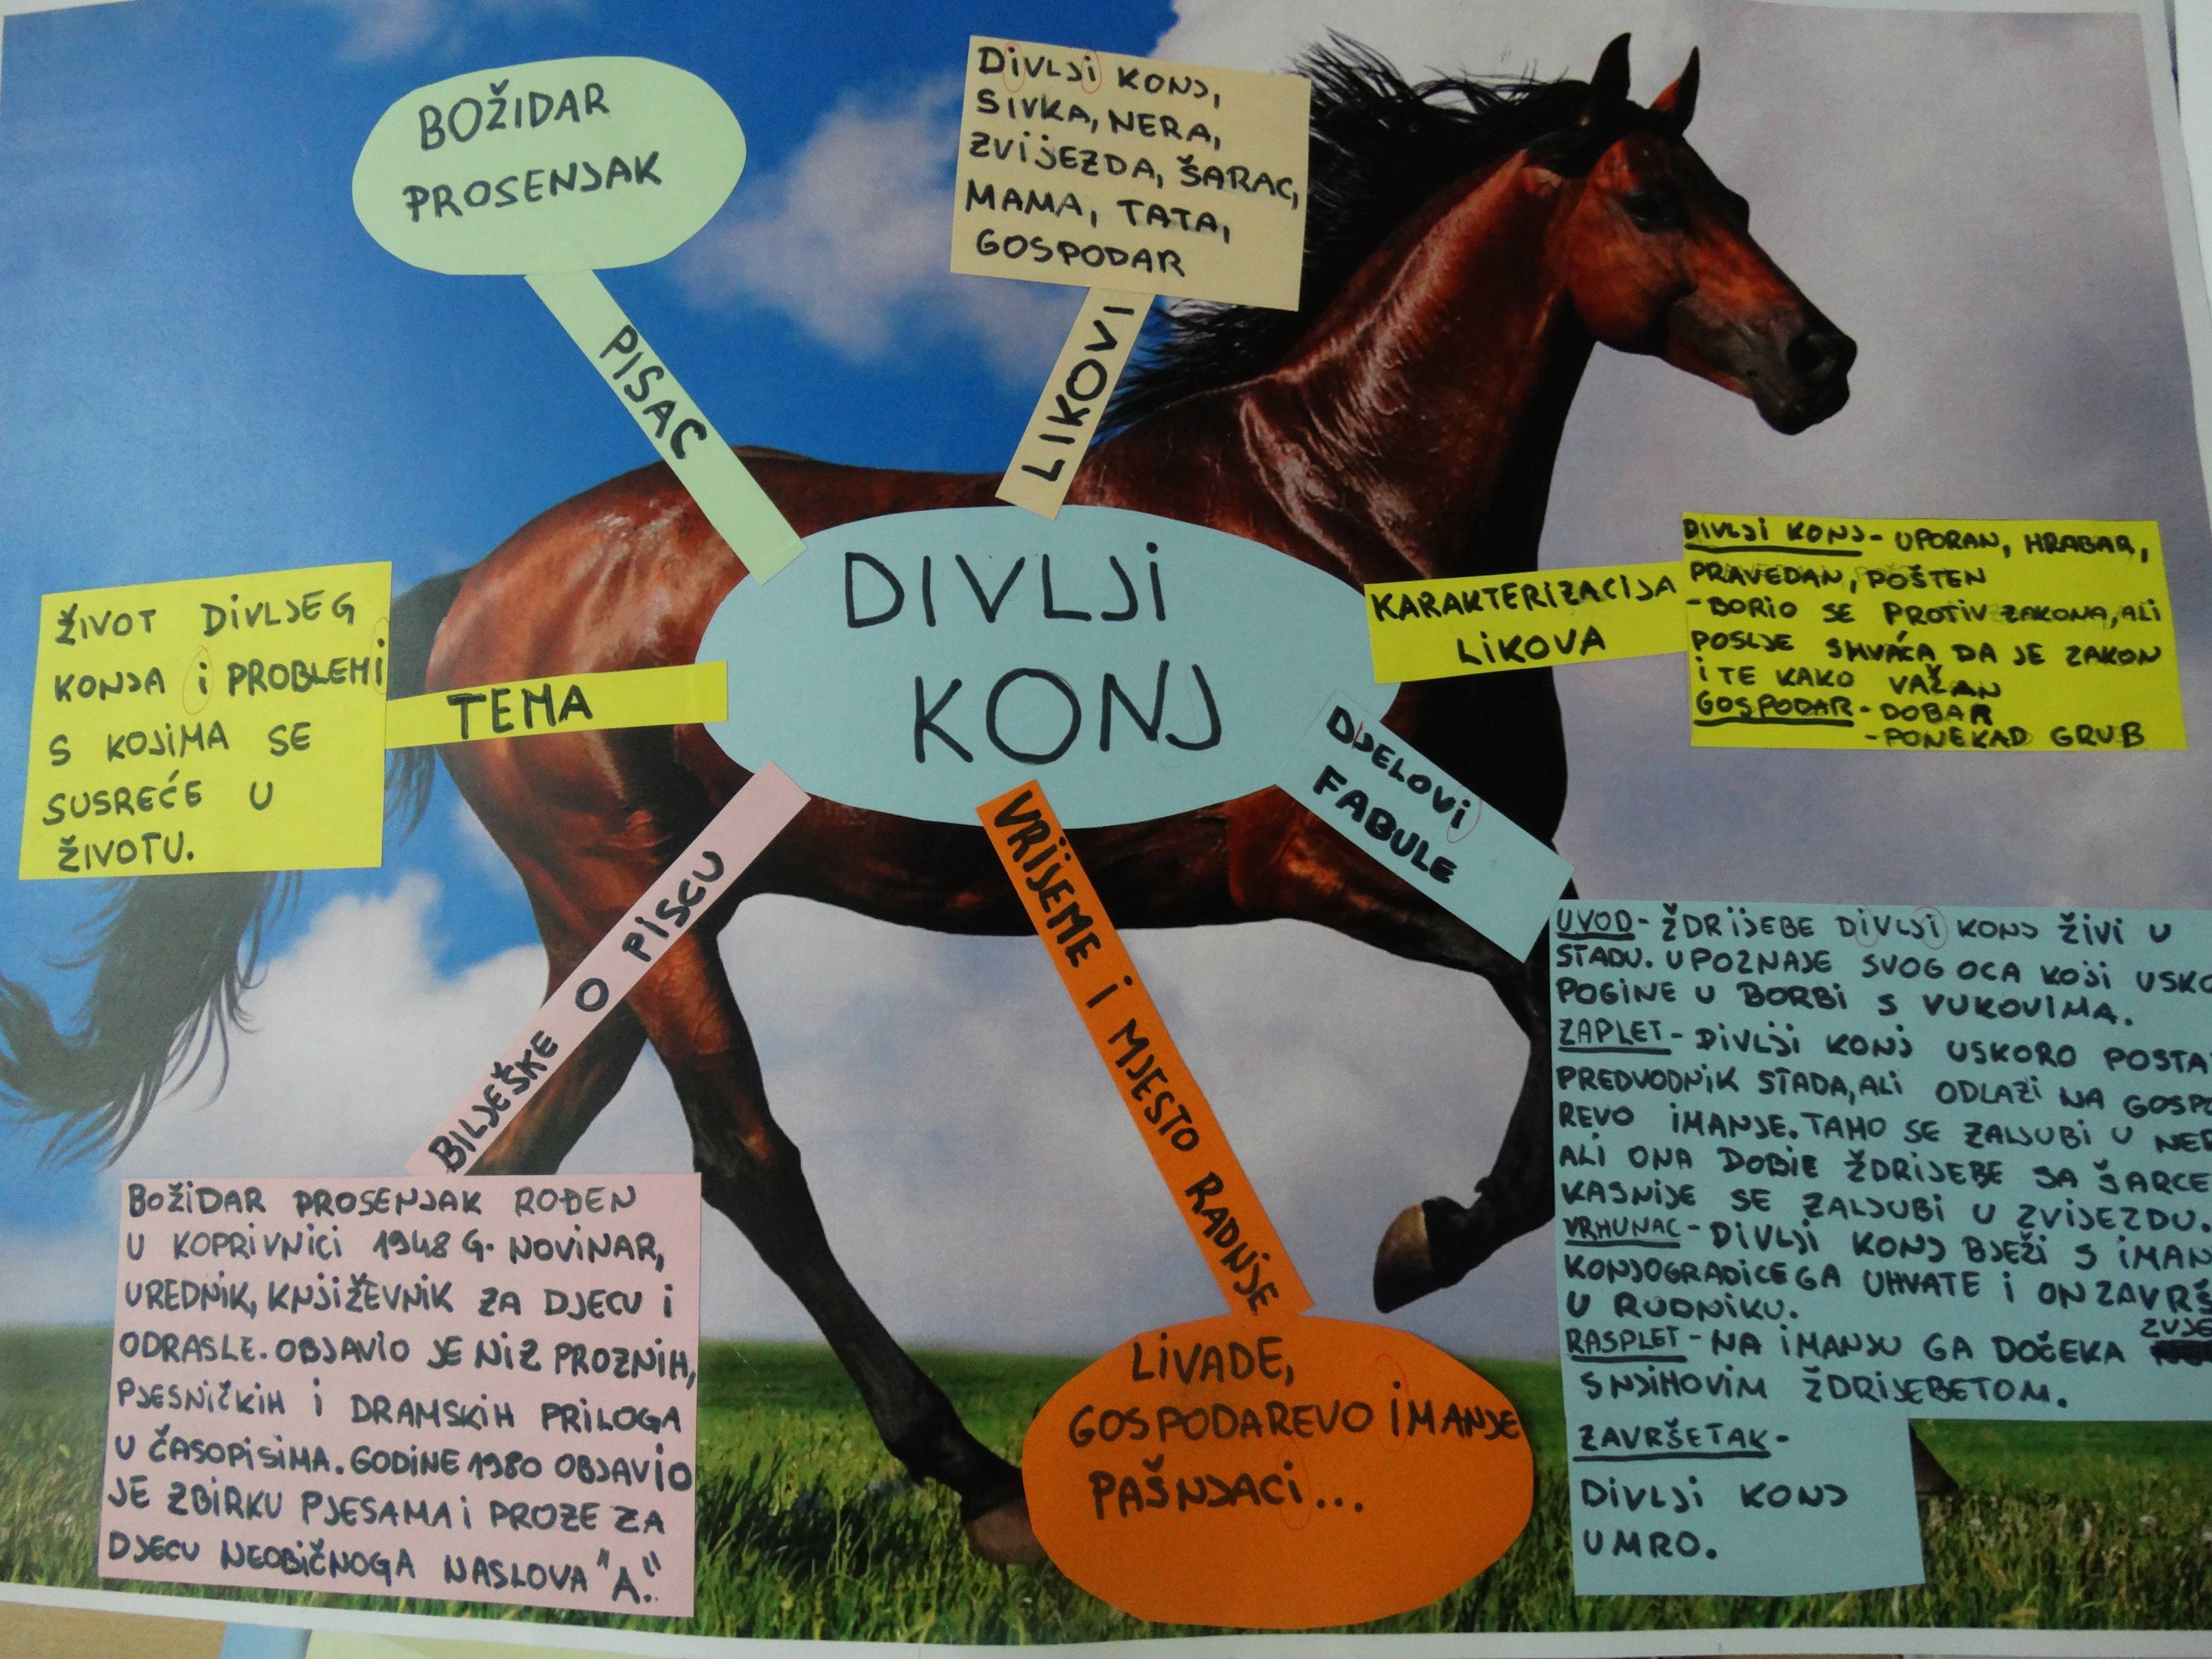 BOŽIDAR
PROSENJAK
PISAC
DiVLJi KONJ,
SIVKA, NERA,
ZVIJEZDA, ŠARAC,
MAMA, TATA,
GOSPODAR
LIKOVI
DIVLJi
KONJ
KARAKTERIZACIJA
LiKOVA
DIVLJI KONJ- UPORAN, HRABAR,
PRAVEDAN, POŠTEN
-BORIO SE PROTIV ZAKONA, ALI
POSLJE SHVAĆA DA JE ZAKON
i TE KAKO VAŽAN
GOSPODAR- DOBAR
-PONEKAD GRUB
ŽIVOT DiVLJEG
KONJA i PROBLEMi
S KOJiMA SE
SUSREĆE U
ŽIVOTU.
TEMA
DJELOVi
FABULE
UVOD- ŽDRIJEBE DiVLJi KONJ ŽIVI U
STADU. UPOZNAJE SVOG OCA KOJI
POGINE U BORBI S VUKOVIMA.
ZAPLET- DIVLJI KONJ USKORO
PREDVODNIK STADA, ALI ODLAZI NA
REVO IMANJE. TAMO SE ZALJUBI U
ALI ONA DOBIE ŽDRIJEBE SA
KASNIJE SE ZALJUBI U ZVIJEZDU.
VRHUNAC- DIVLJI KONJ BJEŽI S
KONJOGRADICE GA UHVATE I ON
U RUDNIKU.
RASPLET- NA IMANJU GA DOČEKA
S NJIHOVIM ŽDRIJEBETOM.
ZAVRŠETAK-
DIVLJI KONJ
UMRO.
VRIJEME i MJESTO RADNJE
LiVADE,
GOSPODAREVO iMANJE
PAŠNJACi...
BILJEŠKE O PISCU
BOŽIDAR PROSENJAK ROĐEN
U KOPRIVNICI 1948 G. NOVINAR,
UREDNIK, KNJIŽEVNIK ZA DJECU i
ODRASLE. OBJAVIO JE NIZ PROZNIH,
PJESNIČKIH I DRAMSKIH PRILOGA
U ČASOPISIMA. GODINE 1980 OBJAVIO
JE ZBIRKU PJESAMA i PROZE ZA
DJECU NEOBIČNOGA NASLOVA "A."